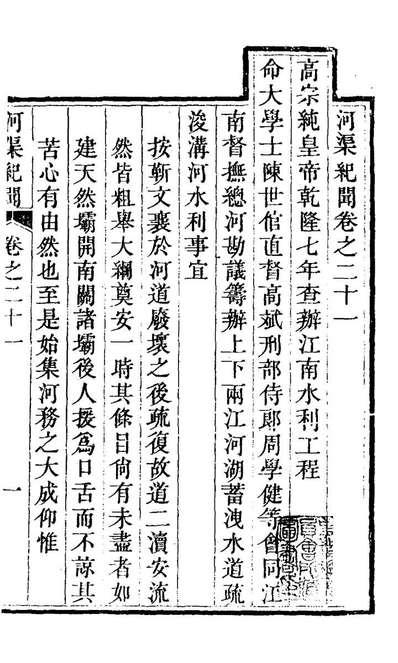 河渠紀聞卷之二十一
高宗純皇帝乾隆七年查辦江南水利工程
命大學士陳世倌直督高斌刑部侍郎周學健等會同江
南督撫總河勘議籌辦上下兩江河湖蓄洩水道疏
浚溝河水利事宜
按靳文襄於河道廢壞之後疏復故道二瀆安流
然皆粗舉大綱奠安一時其條目尙有未盡者如
建天然壩開南關諸壩後人援爲口舌而不諒其
苦心有由然也至是始集河務之大成仰惟
河渠紀聞 卷之二十一 一